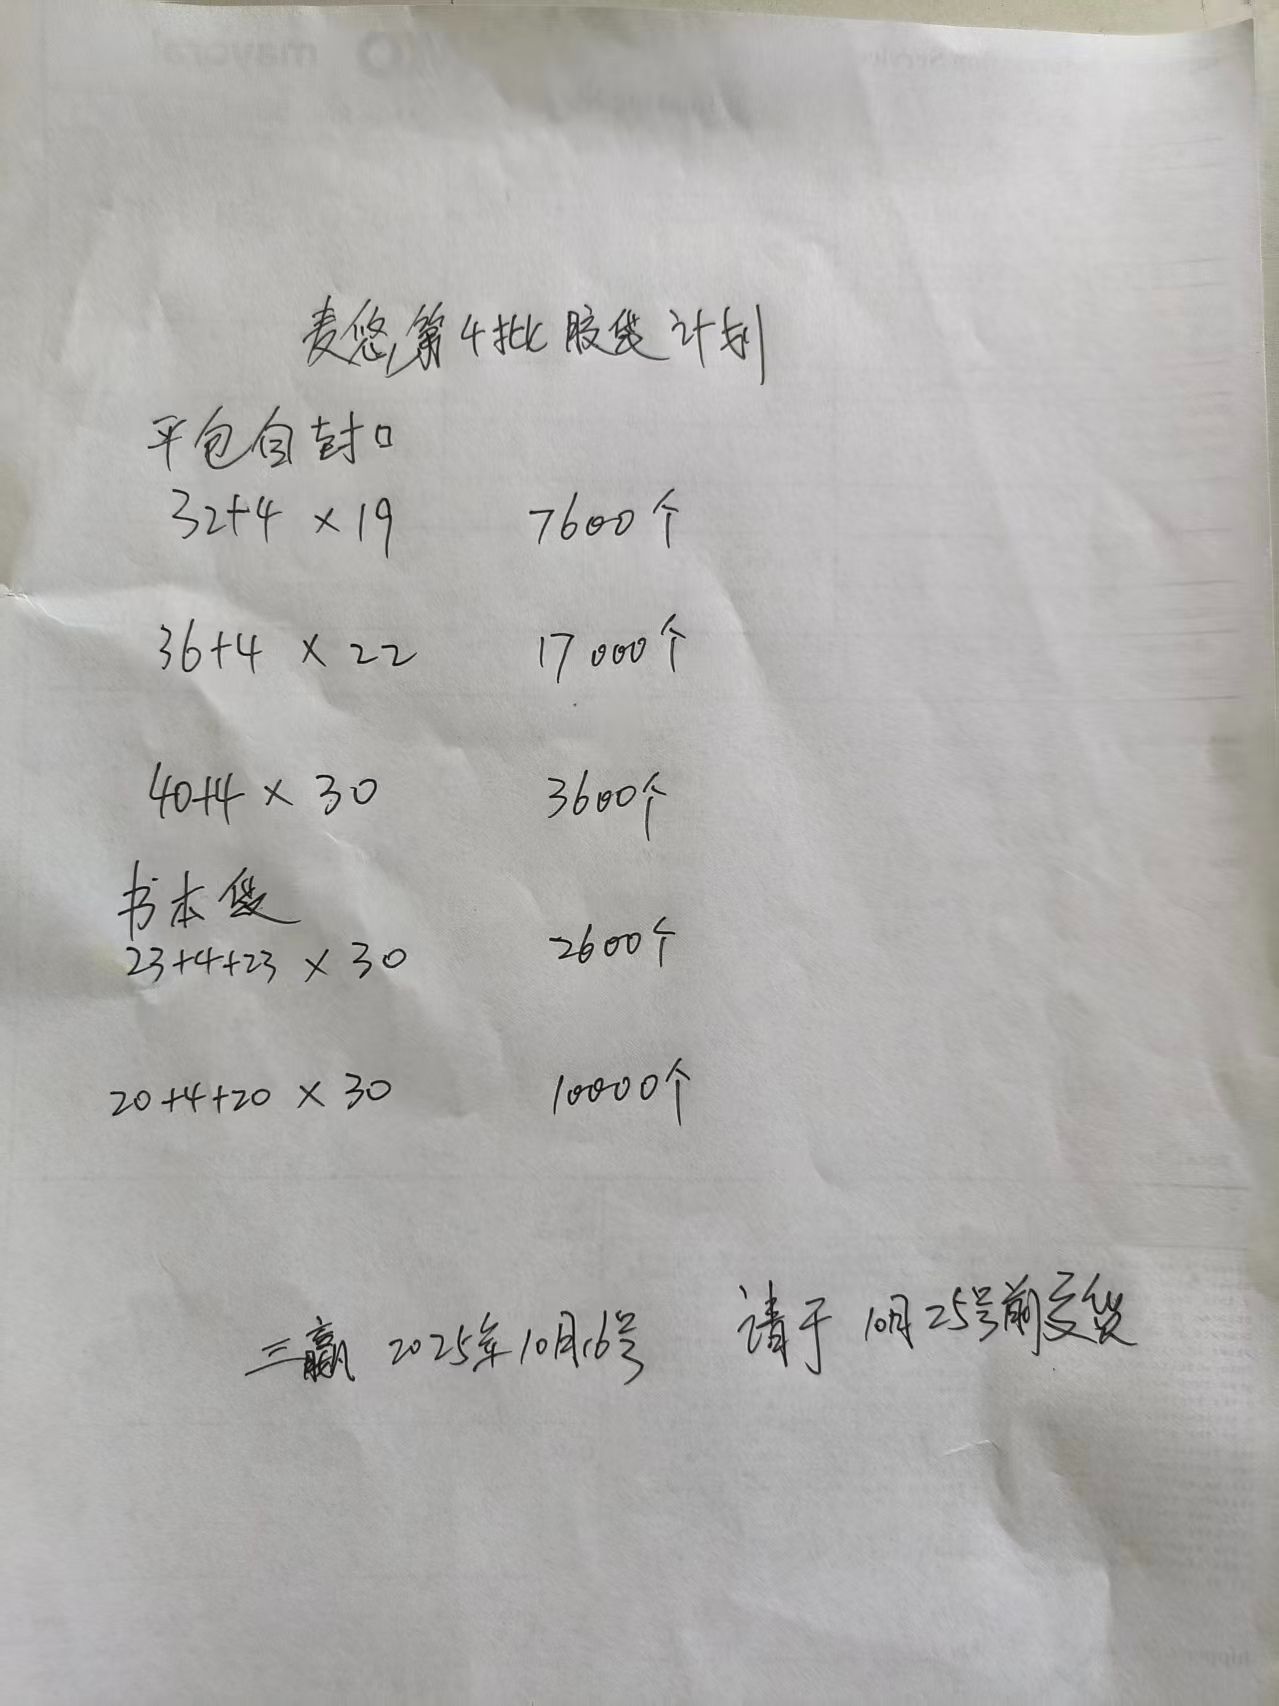 麦悠第4批胶袋计划
平包自封口
32+4 × 19 7600个
36+4 × 22 17000个
40+4 × 30 3600个
书本袋
23+4+23 × 30 2600个
20+4+20 × 30 10000个
三赢 2025年10月16号 请于10月25号前交货